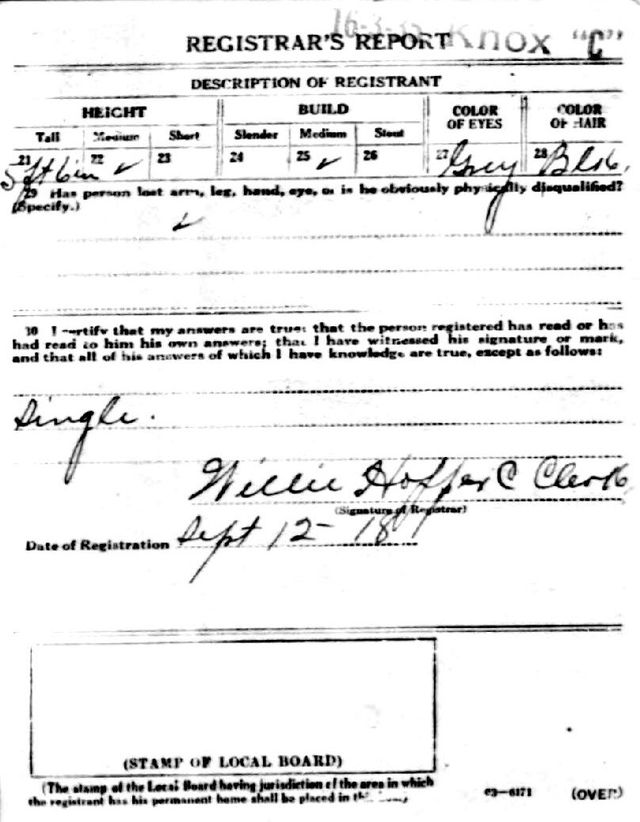 16-3-35 Knox "C"
REGISTRAR'S REPORT
DESCRIPTION OF REGISTRANT
HEIGHT BUILD COLOR OF EYES COLOR OF HAIR
Tall Medium Short Slender Medium Stout
21 22 ✓ 23 24 25 ✓ 26 27 Grey 28 Blk.
5 ft 6 in
29 Has person lost arm, leg, hand, eye, or is he obviously physically disqualified?
(Specify.)
✓
30 I certify that my answers are true; that the person registered has read or has
had read to him his own answers; that I have witnessed his signature or mark,
and that all of his answers of which I have knowledge are true, except as follows:
Single.
Willie C Clerk
(Signature of Registrar)
Date of Registration Sept 12-18
(STAMP OF LOCAL BOARD)
(The stamp of the Local Board having jurisdiction of the area in which
the registrant has his permanent home shall be placed in
03-6171 (OVER)